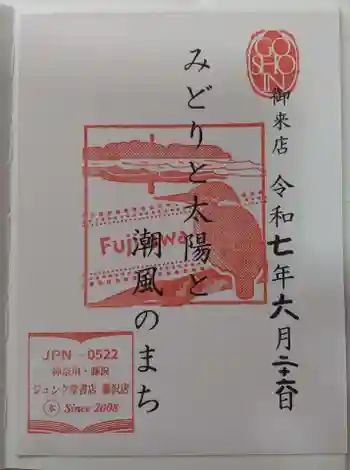 GO
SHO
IN
御来店
令和七年六月二十六日
みどりと太陽と
潮風のまち
Fujisawa
JPN - 0522
神奈川・藤沢
ジュンク堂書店 藤沢店
本 Since 2008